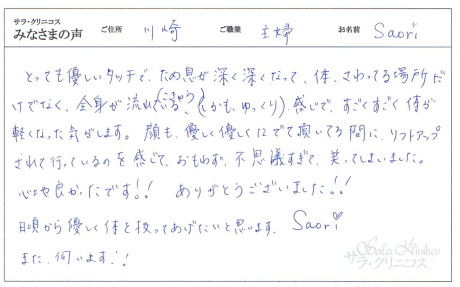 サラ・クリニコス
みなさまの声 ご住所 川崎 ご職業 主婦 お名前 Saori
とっても優しいタッチで、息が深く深くなって、体、さわってる場所だ
けでなく、全身が流れてる、(しかも、ゆっくり)感じで、すごくすごく体が
軽くなった気がします。顔も、優しく優しくなでて頂いてる間に、リフトアップ
されて行っているのを感じて、おもわず、不思議すぎて、笑ってしまいました。
心地良かったです!! ありがとうございました!!
日頃から優しく体を扱ってあげたいと思います。 Saori♡
また、伺います!!
Sala Klinikos
サラ・クリニコス